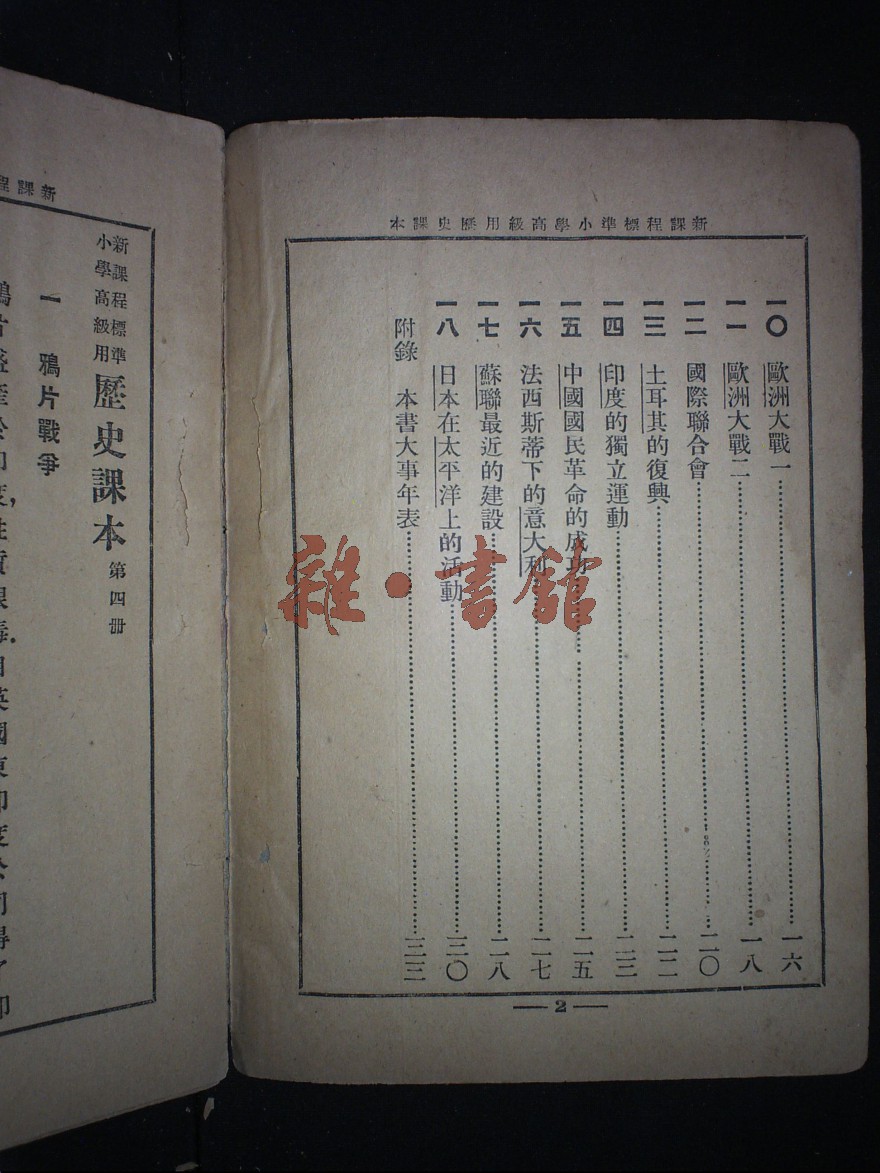 新課程標準小學高級用歷史課本
一〇 歐洲大戰一……一六
一一 歐洲大戰二……一八
一二 國際聯合會……二〇
一三 土耳其的復興……二二
一四 印度的獨立運動……二三
一五 中國國民革命的成功……二五
一六 法西斯蒂下的意大利……二七
一七 蘇聯最近的建設……二八
一八 日本在太平洋上的活動……三〇
附錄 本書大事年表……三三
2
雜·書館
新課程
新課程標準
小學高級用
歷史課本 第四冊
一 鴉片戰爭